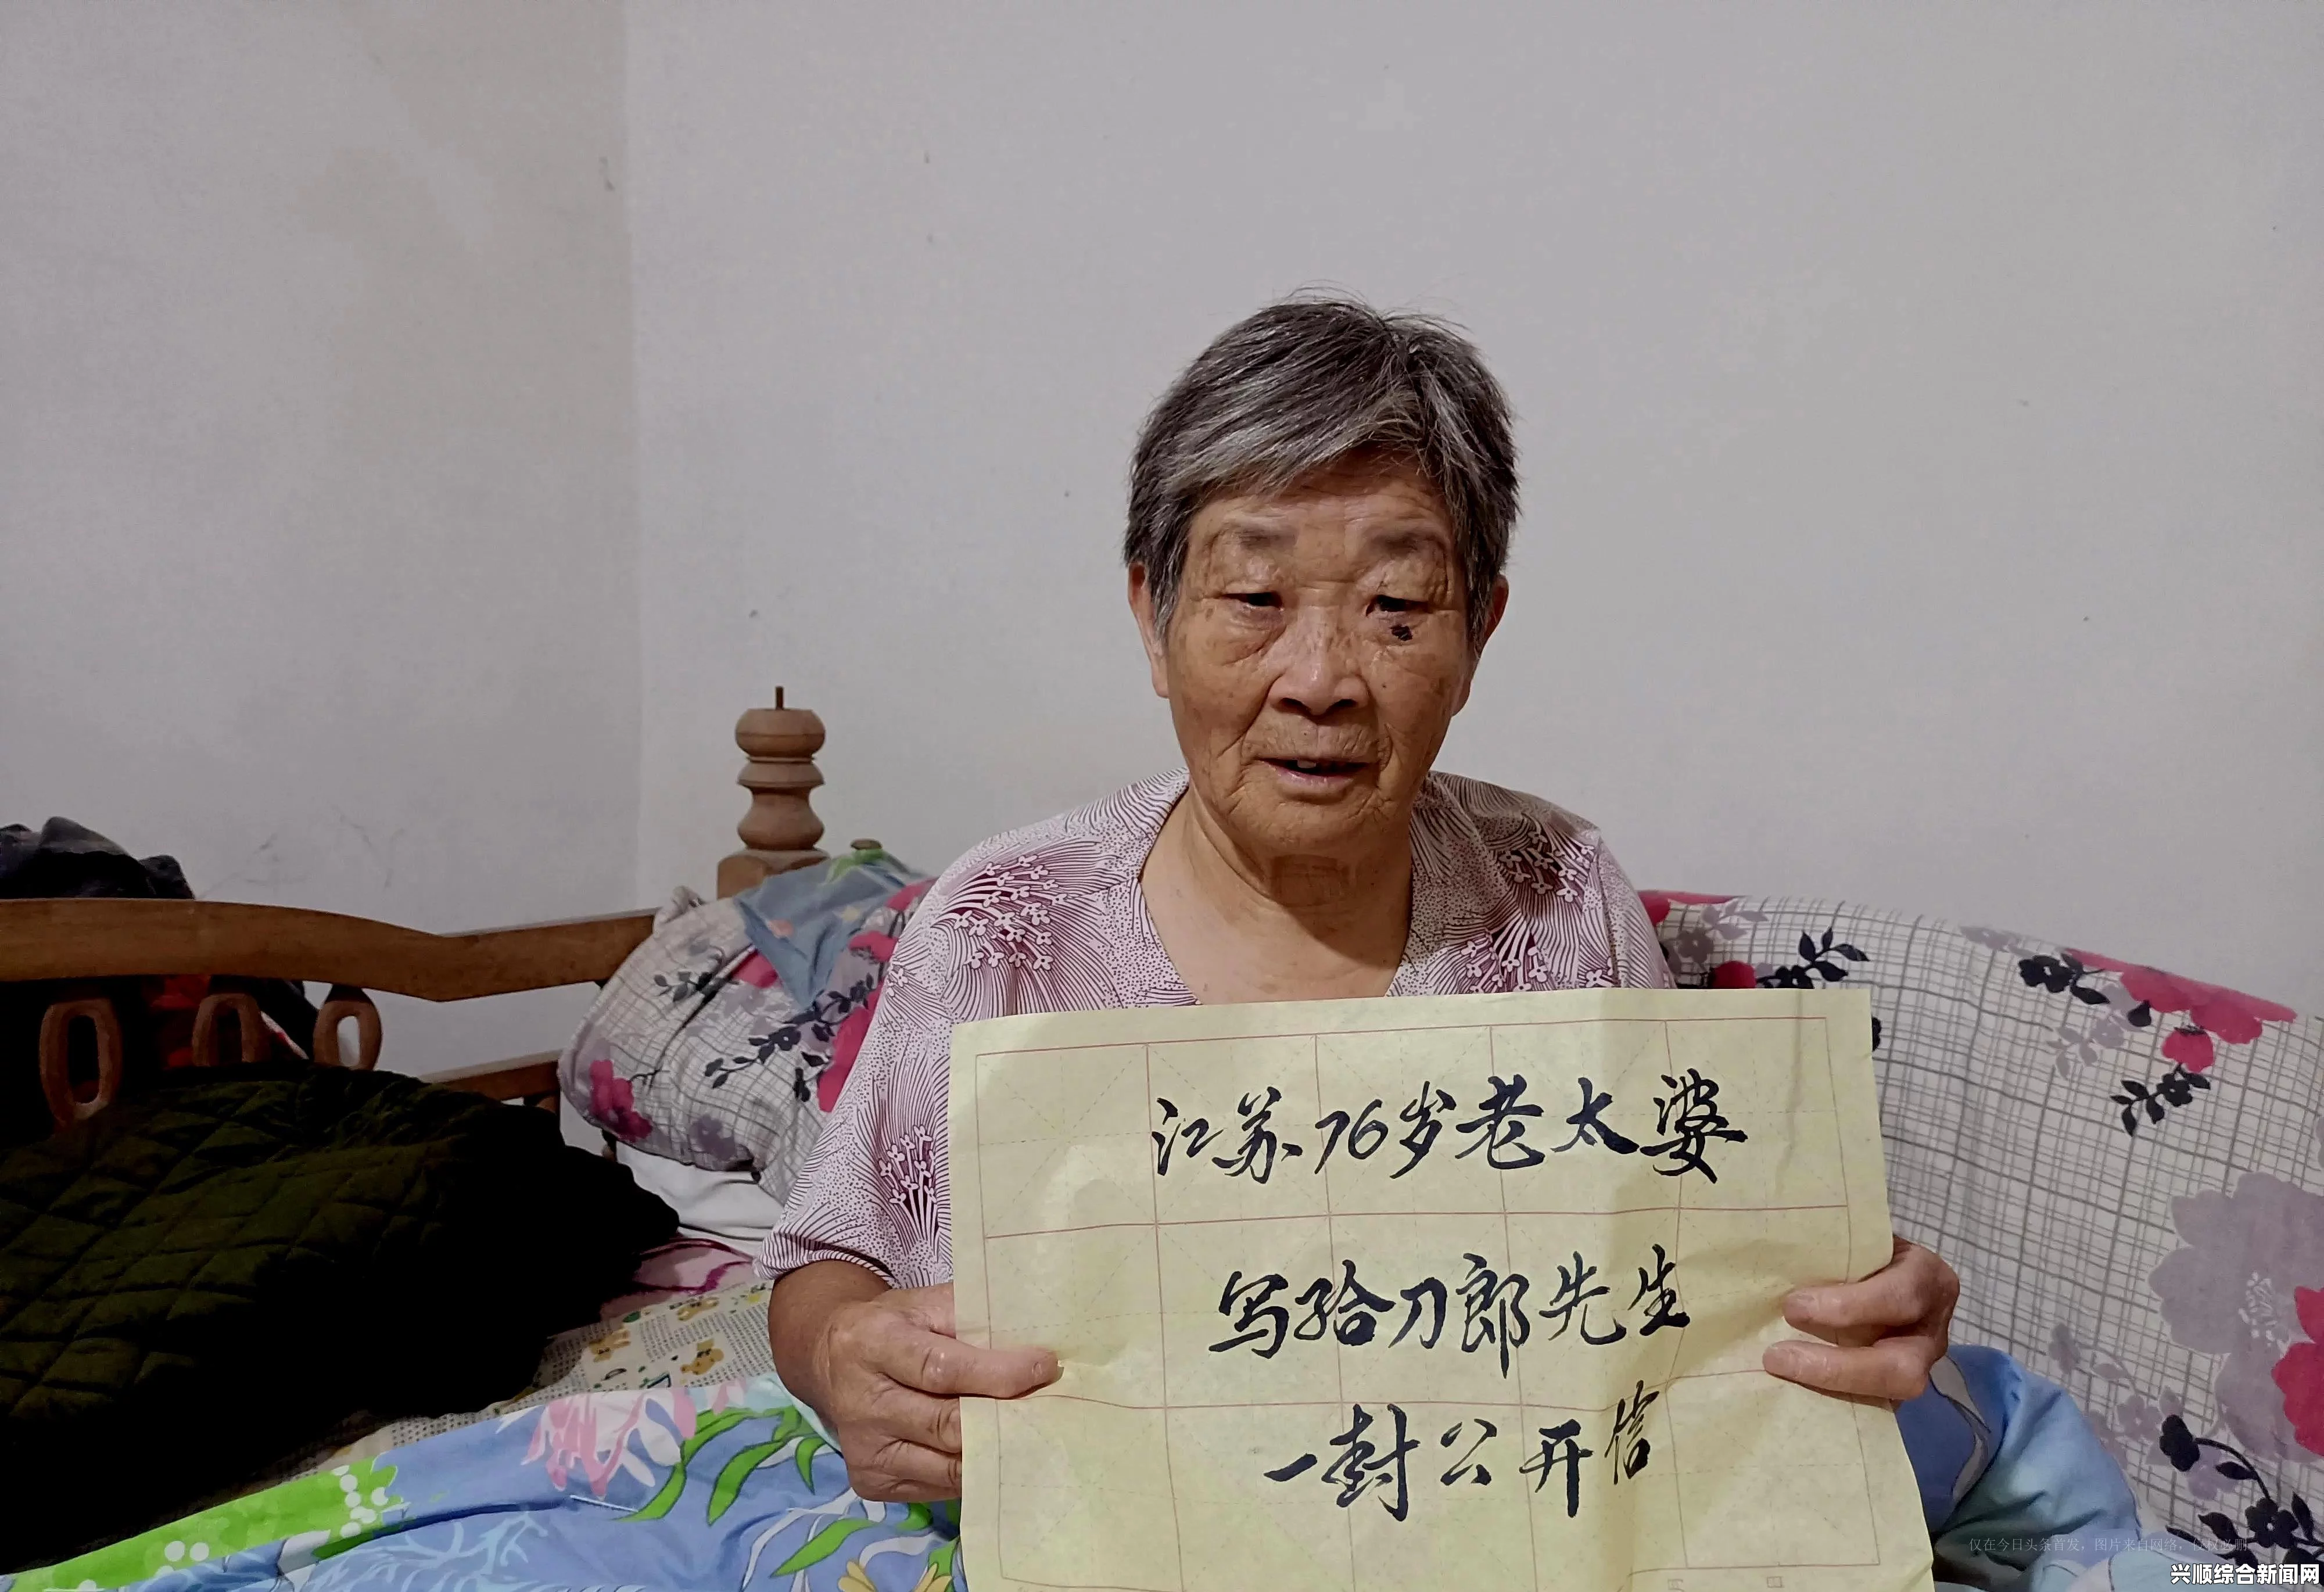 江苏76岁老太婆
写给刀郎先生
一封公开信
仅在今日头条首发，图片来自网络，侵权必删
兴顺综合新闻网